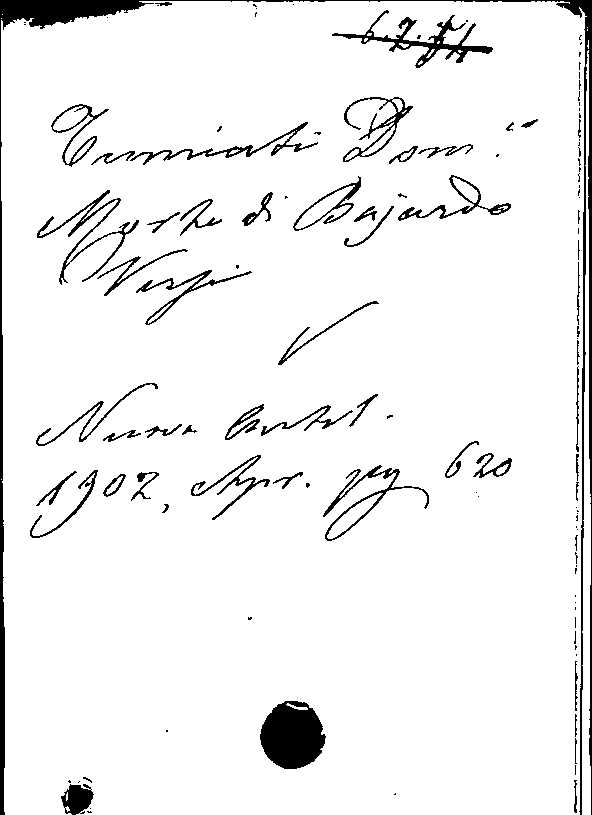 6.2.54
Tumiati Dom.
Morte di Bajardo
Versi
V
Nuova Antol.
1902, Apr. pag 620